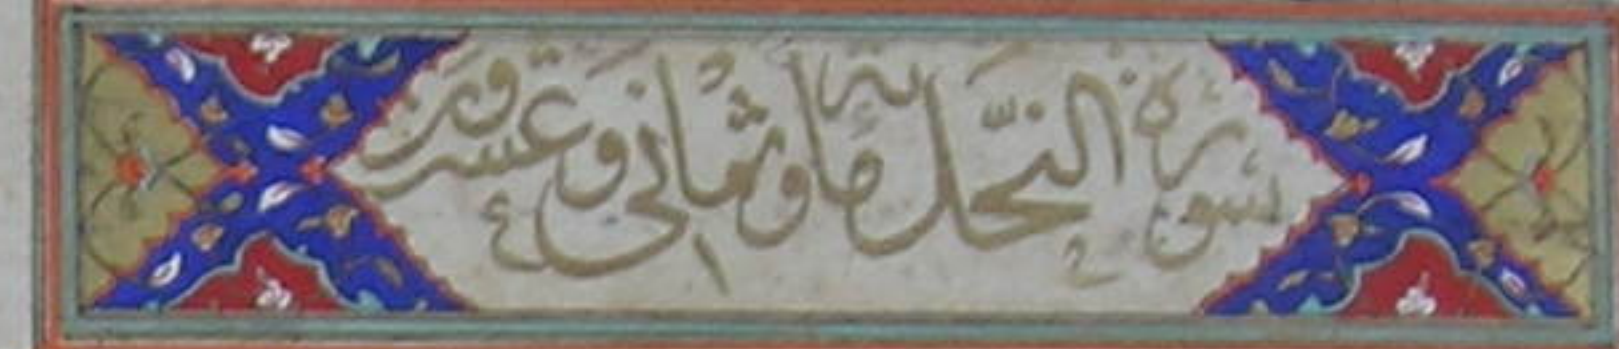 سورة النحل مائة وثمانى وعشرون